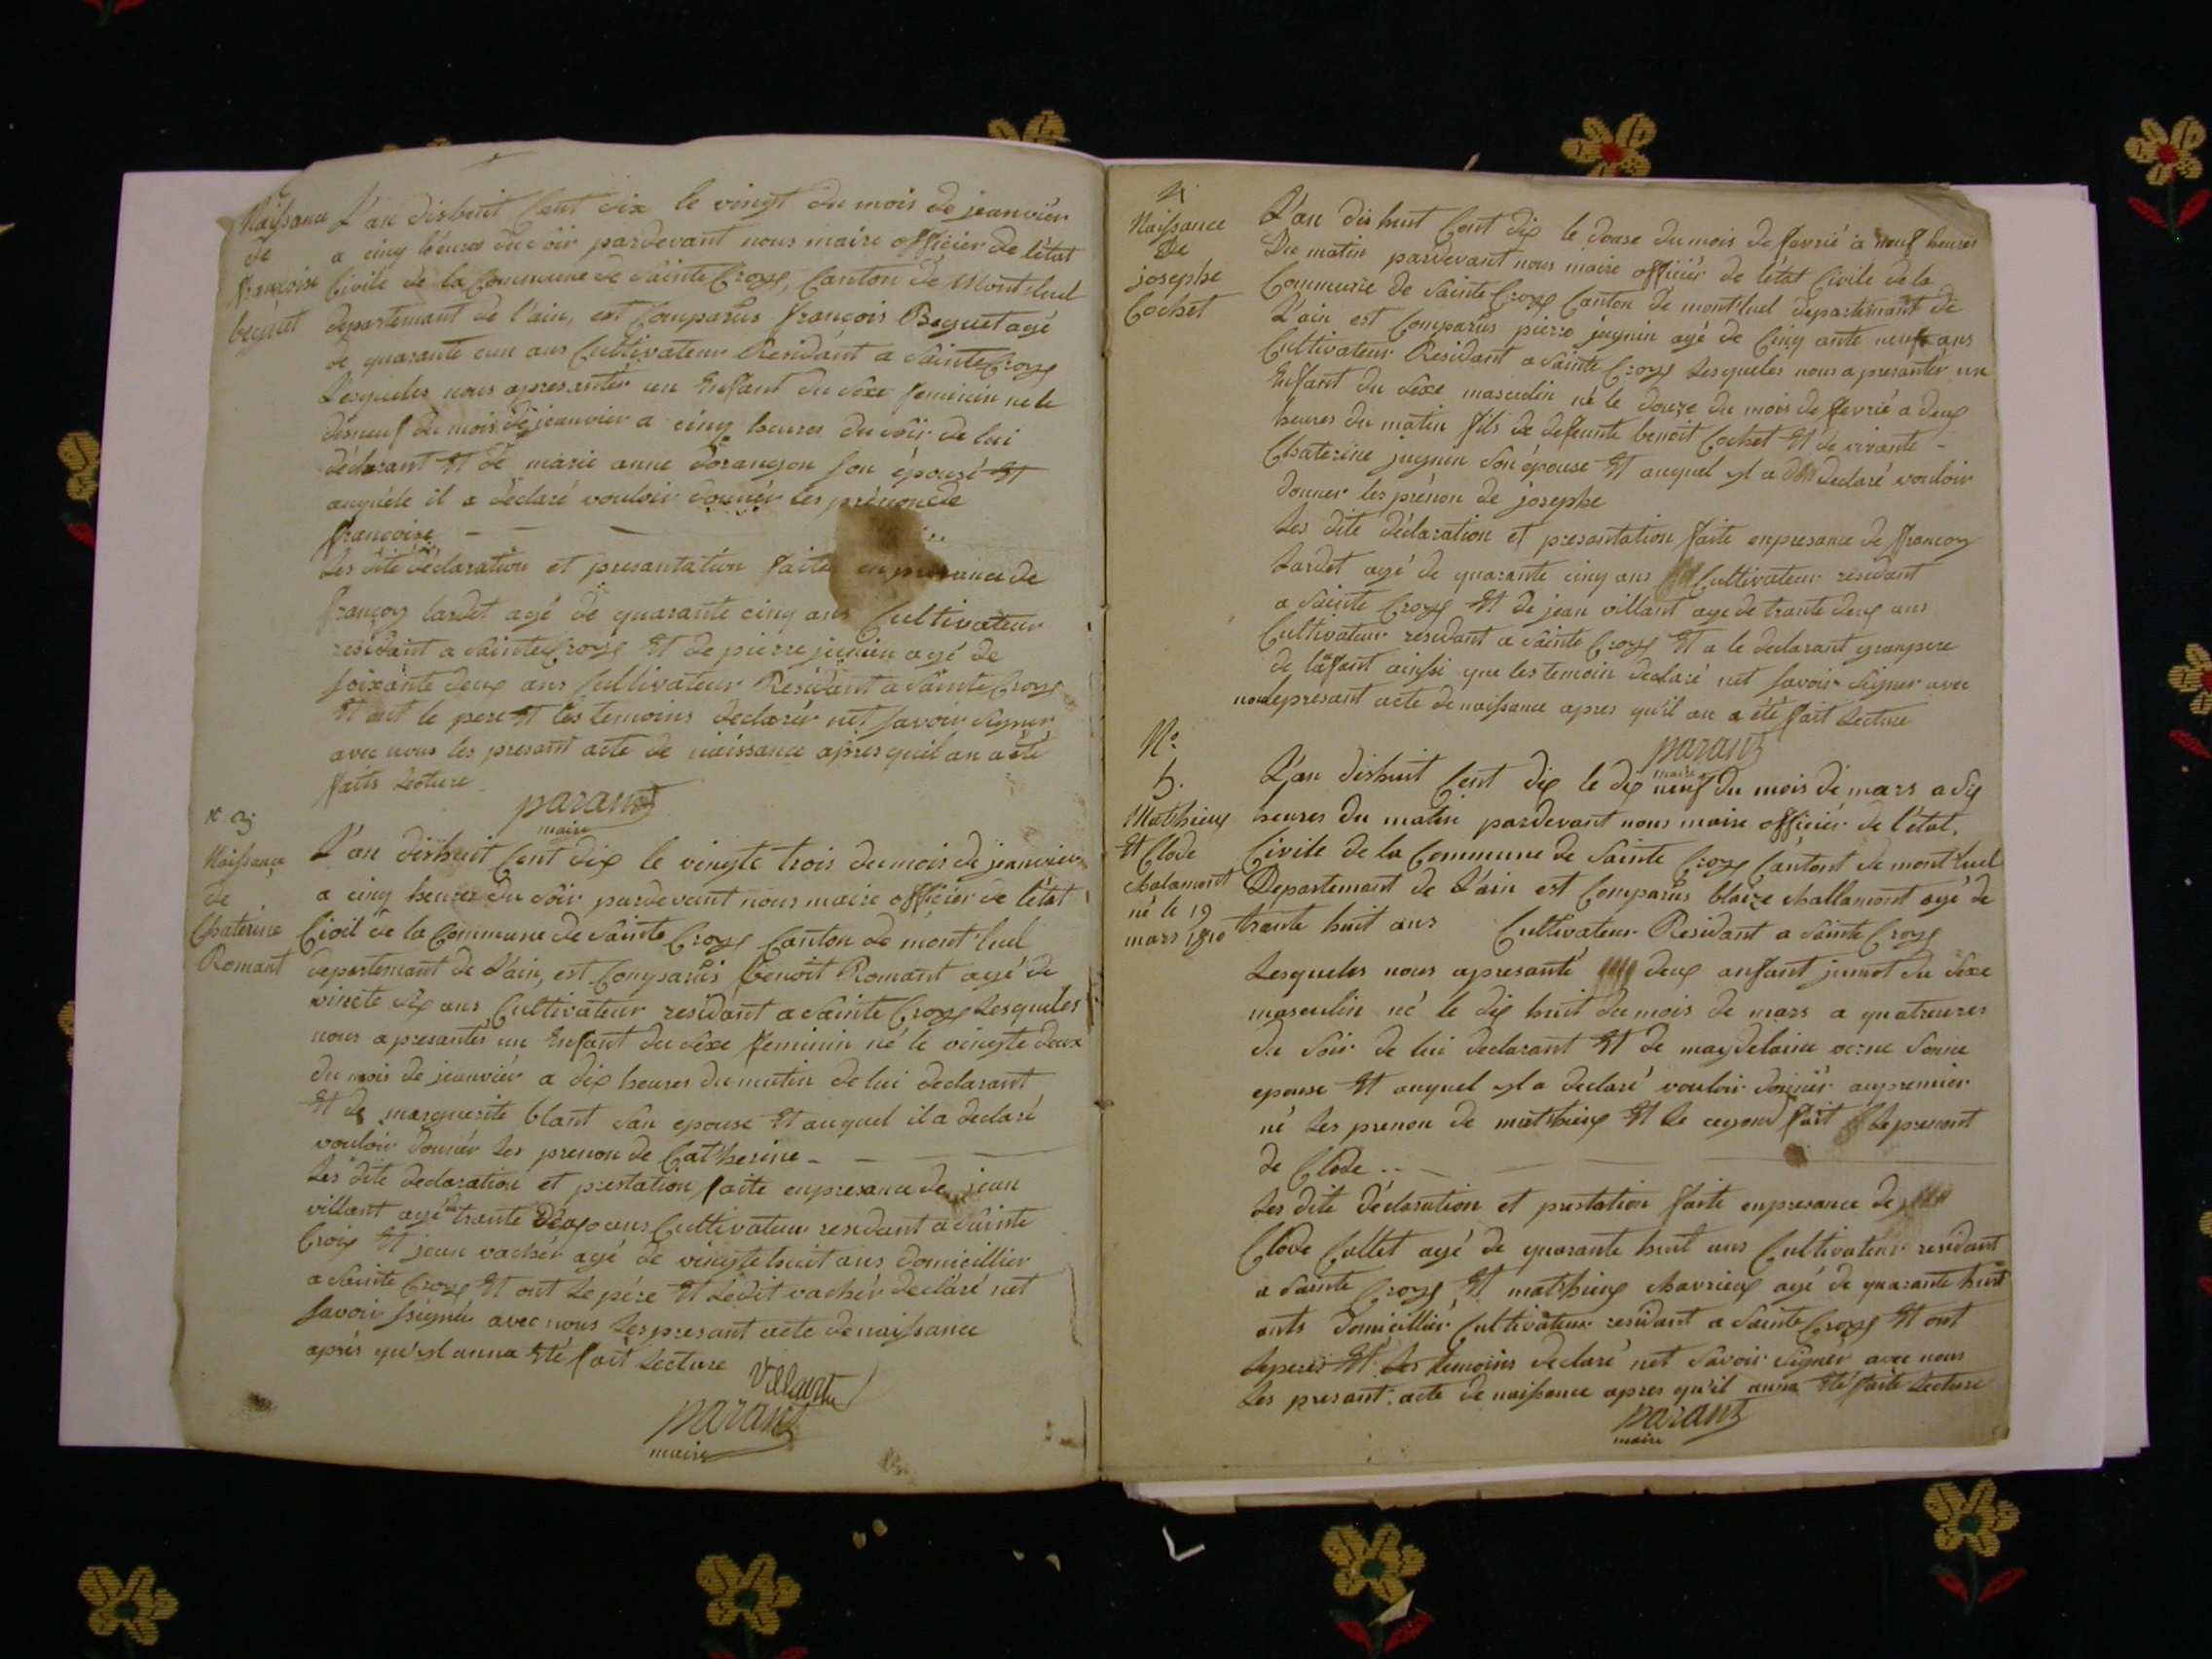 Naissance
de
françoise
beguet
L'an dishuit Cent dix le vingt du mois de jeanviér
a cinq héures du soir pardevant nous maire officier de l'état
Civile de la Commune de Sainte Croye, Canton de Montluel
departemant de l'ain, est Comparus françois Beguet agé
de quarante eun ans Cultivateur Residant a Sainte Croye
Lesqueles nous apresentér un Enfant du séxe feminin né le
disneuf du mois de jeanvier a cinq heures du soir de lui
déclarant Et de marie anne dorangon son épouse Et
auquéle il a déclaré vouloir donnér les prénon de
françoise
Les dite déclaration et presantation faite en presance de
françoy lardet agé de quarante cinq ans Cultivateur
residant a Sainte Croye Et de pierre juenin agé de
soixante deux ans Cultivateur Résidant a Sainte Croye
Et ont le pere Et les temoins declarér net savoir signer
avec nous les presant acte de naissance apres quil an a été
faits Lecture
parant
maire
N 3
Naissance
de
Chaterine
Romant
L'an dishuit Cent dix le vingte trois du mois de jeanvier
a cinq heures du soir pardevant nous maire officiér de l'état
Civil de la Commune de Sainte Croye Canton de mont luel
departemant de L'ain, est Comparus benoit Romant agé de
vincte six ans Cultivateur residant a Sainte Croye Lesqueles
nous apresantés un Enfant du séxe feminin né le vingte deux
du mois de jeanviér a dix heures du matin de lui declarant
Et de marguerite blant san epouse Et auquel il a declaré
vouloir donnér les prenon de Catherine
Les dite declaration et prestation faite enpresance de jean
villant agé de trante deux ans Cultivateur residant a Sainte
Croix Et jean vachér agé de vingte huit ans domicillier
a Sainte Croye Et ont le pére Et ledit vachér declaré net
savoir ssignés avec nous les presant acte denaissance
aprés qu'yl anna Eté fait Lecture
Villant
parant
maire
4
Naissance
De
josephe
Cochet
L'an dis huit Cent dix le douse du mois de favrié à neuf heures
Du matin pardevant nous maire officiér de l'état Civile de la
Commune de Sainte Croye Canton de montluel departimant de
L'ain est Comparus pierre jugnin agé de Cinq ante neuf ans
Cultivateur Residant a Sainte Croye Lesqueles nous apresantér un
Enfant du séxe masculin né le douze du mois de fevrié a deux
heures du matin fils de defeunte benoit Cochet Et de vivante
Chaterine jugnin son épouse Et auquel yl a declaré vouloir
donner les prénon de josephe
Les dite déclaration et presantation faite enpresance de françoy
Lardet agé de quarante cinq ans Cultivateur résidant
a Sainte Croye Et de jean villant age de trante deux ans
Cultivateur residant a Sainte Croye Et a le declarant granpere
de lafant ainssi que les temoin declaré net savoir signer avec
nous lepresant acte de naissance apres qu'il an a été fait Lecture
parant
maire
N°
5.
Mathieux
Et Clode
chalamont
né le 19
mars 1810
L'an dishuit Cent dix le dix neuf du mois de mars a dix
heures du matin pardevant nous maire officiér de l'état.
Civile de la Commune de Sainte Croye Cantont de mont luel
Departemant de L'ain est Comparus blaize challamont agé de
trante huit ans Cultivateur Residant a Sainte Croye
Lesqueles nous apresanté deux anfant jumot du séxe
masculin né le dix huit du mois de mars a quatreures
du soir de lui declarant Et de maydelaine verne sonne
epouse Et auquel yl a declaré vouloir donnér aupremier
né les prenon de mathieux Et le cegond fait le prenont
de Clode
Les dite déclaration et prestation faite enpresance de
Clode Callet agé de quarante huit ans Cultivateur residant
a Sainte Croye Et mathieux chavrieux agé de quarante huit
ants domicilliér Cultivateur residant a Sainte Croye Et ont
leperes Et les temoins declaré net savoir signér avec nous
Les presant. acte de naissance apres qu'il anna Eté faite Lecture
parant
maire